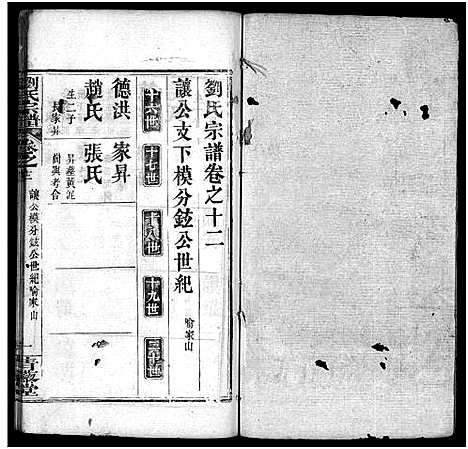 劉氏宗譜卷之十二
讓公支下模分鉉公世紀 喻家山
十六世 十七世 十八世 十九世 二十世
德洪 家昇
趙氏 張氏
生二子
長家昇
昇產黃泥
劉氏宗譜
卷之十二
讓公模分鉉公世紀喻家山
一
青藜堂